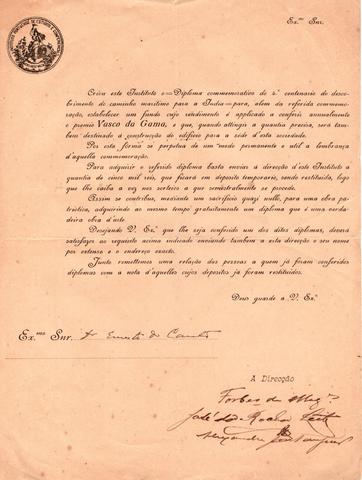 Ex.mo Snr.
Creou este Instituto o «Diploma commemorativo do 4.º centenario do desco-
brimento do caminho maritimo para a India» para, alem da referida commemo-
ração, estabelecer um fundo cujo rendimento é applicado a conferir annualmente
o premio Vasco da Gama, e que, quando attingir a quantia precisa, será tam-
bem destinado á construcção do edificio para a séde d'esta sociedade.
Por esta fórma se perpetua de um modo permanente e util a lembran-
ça d'aquella commemoração.
Para adquirir o referido diploma basta enviar á direcção d'este Instituto a
quantia de cinco mil reis, que ficará em deposito temporario, sendo restituida, logo
que lhe caiba a vez nos sorteios a que semestralmente se procede.
Assim se contribue, mediante um sacrificio quazi nullo, para uma obra pa-
triotica, adquirindo ao mesmo tempo gratuitamente um diploma que é uma verda-
deira obra d'arte.
Desejando V. Ex.ª que lhe seja conferido um dos ditos diplomas, deverá
satisfazer ao requisito acima indicado enviando tambem a esta direcção o seu nome
por extenso e o endereço exacto.
Junto remettemos uma relação das pessoas a quem já foram conferidos
diplomas com a nota d'aquelles cujos depositos já foram restituidos.
Deus guarde a V. Ex.ª
Ex.mo Snr. Dr Ernesto do Canto
A Direcção